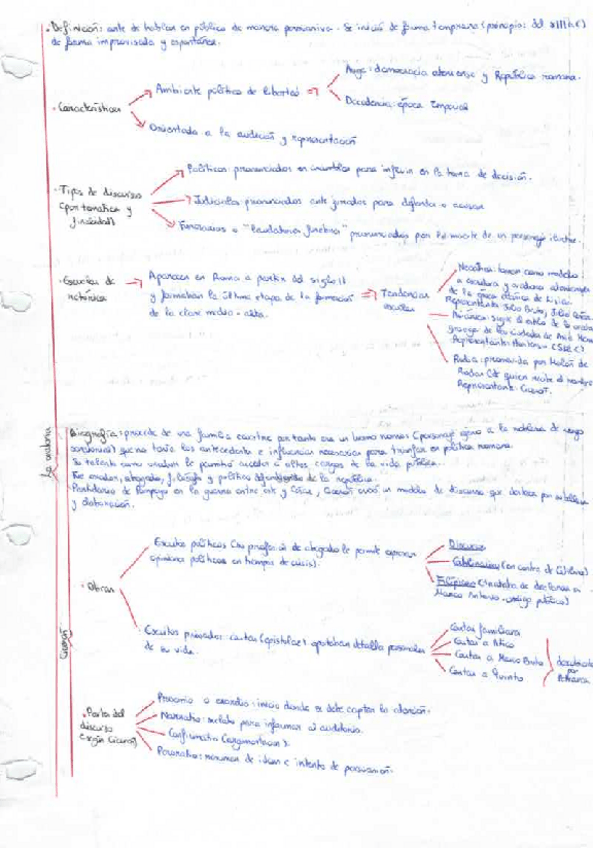 · Definición: arte de hablar en público de manera persuasiva. Se inició de forma temprana (principio del
de forma improvisada y espontánea.
· Características
Ambiente político de libertad
Auge: democracia ateniense y República romana.
Decadencia: época Imperial
Orientado a la audición y representación
· Tipos de discurso
(por temática y
finalidad)
Políticos: pronunciados en asamblea para influir en la toma de decisión.
Judiciales: pronunciados ante jurados para defender o acusar
Funerarios o "laudationes funebres" pronunciados por la muerte de un personaje ilustre.
· Escuelas de
retórica
Aparecen en Roma a partir del siglo II
y formaban la última etapa de la formación
de la clase media-alta.
Tendencias
escuelas
Neoática: toman como modelo
a
de la época clásica de Lisias.
Representante: Julio Bruto, Julio César.
Asiánica: sigue el estilo de la
de las ciudades de Asia Menor
Representante: Hortensio
Rodia: promovida por Molón de
Rodas (de quien recibe el nombre)
Representante: Cicerón.
La oratoria
Cicerón
Biografía: procede de una familia ecuestre por tanto era un homo novus (personaje ajeno a la nobleza de rango
senatorial) que no tenía los antecedentes e influencias necesarias para triunfar en política romana.
Su talento como orador le permitió acceder a altos cargos de la vida pública.
Fue orador, abogado, filósofo y político defendiendo de la república.
Partidario de Pompeyo en la guerra entre este y César, Cicerón creó un modelo de discurso que destaca por
y elaboración.
· Obras
Escritos políticos (su profesión de abogado le permite expresar
opiniones políticas en tiempos de crisis).
Discursos
Catilinarias (en contra de Catilina)
Filípicas
Marco Antonio enemigo público)
Escritos privados: cartas (epistolae) aportaban detalles personales
de su vida.
Cartas familiares
Cartas a Ático
Cartas a Marco Bruto
Cartas a Quinto
por
Petrarca
· Partes del
discurso
(según Cicerón)
Proemio o exordio: inicio donde se debe captar la atención.
Narratio: relato para informar al auditorio.
Confirmatio (argumentación).
Peroratio: resumen de ideas e intento de persuasión.